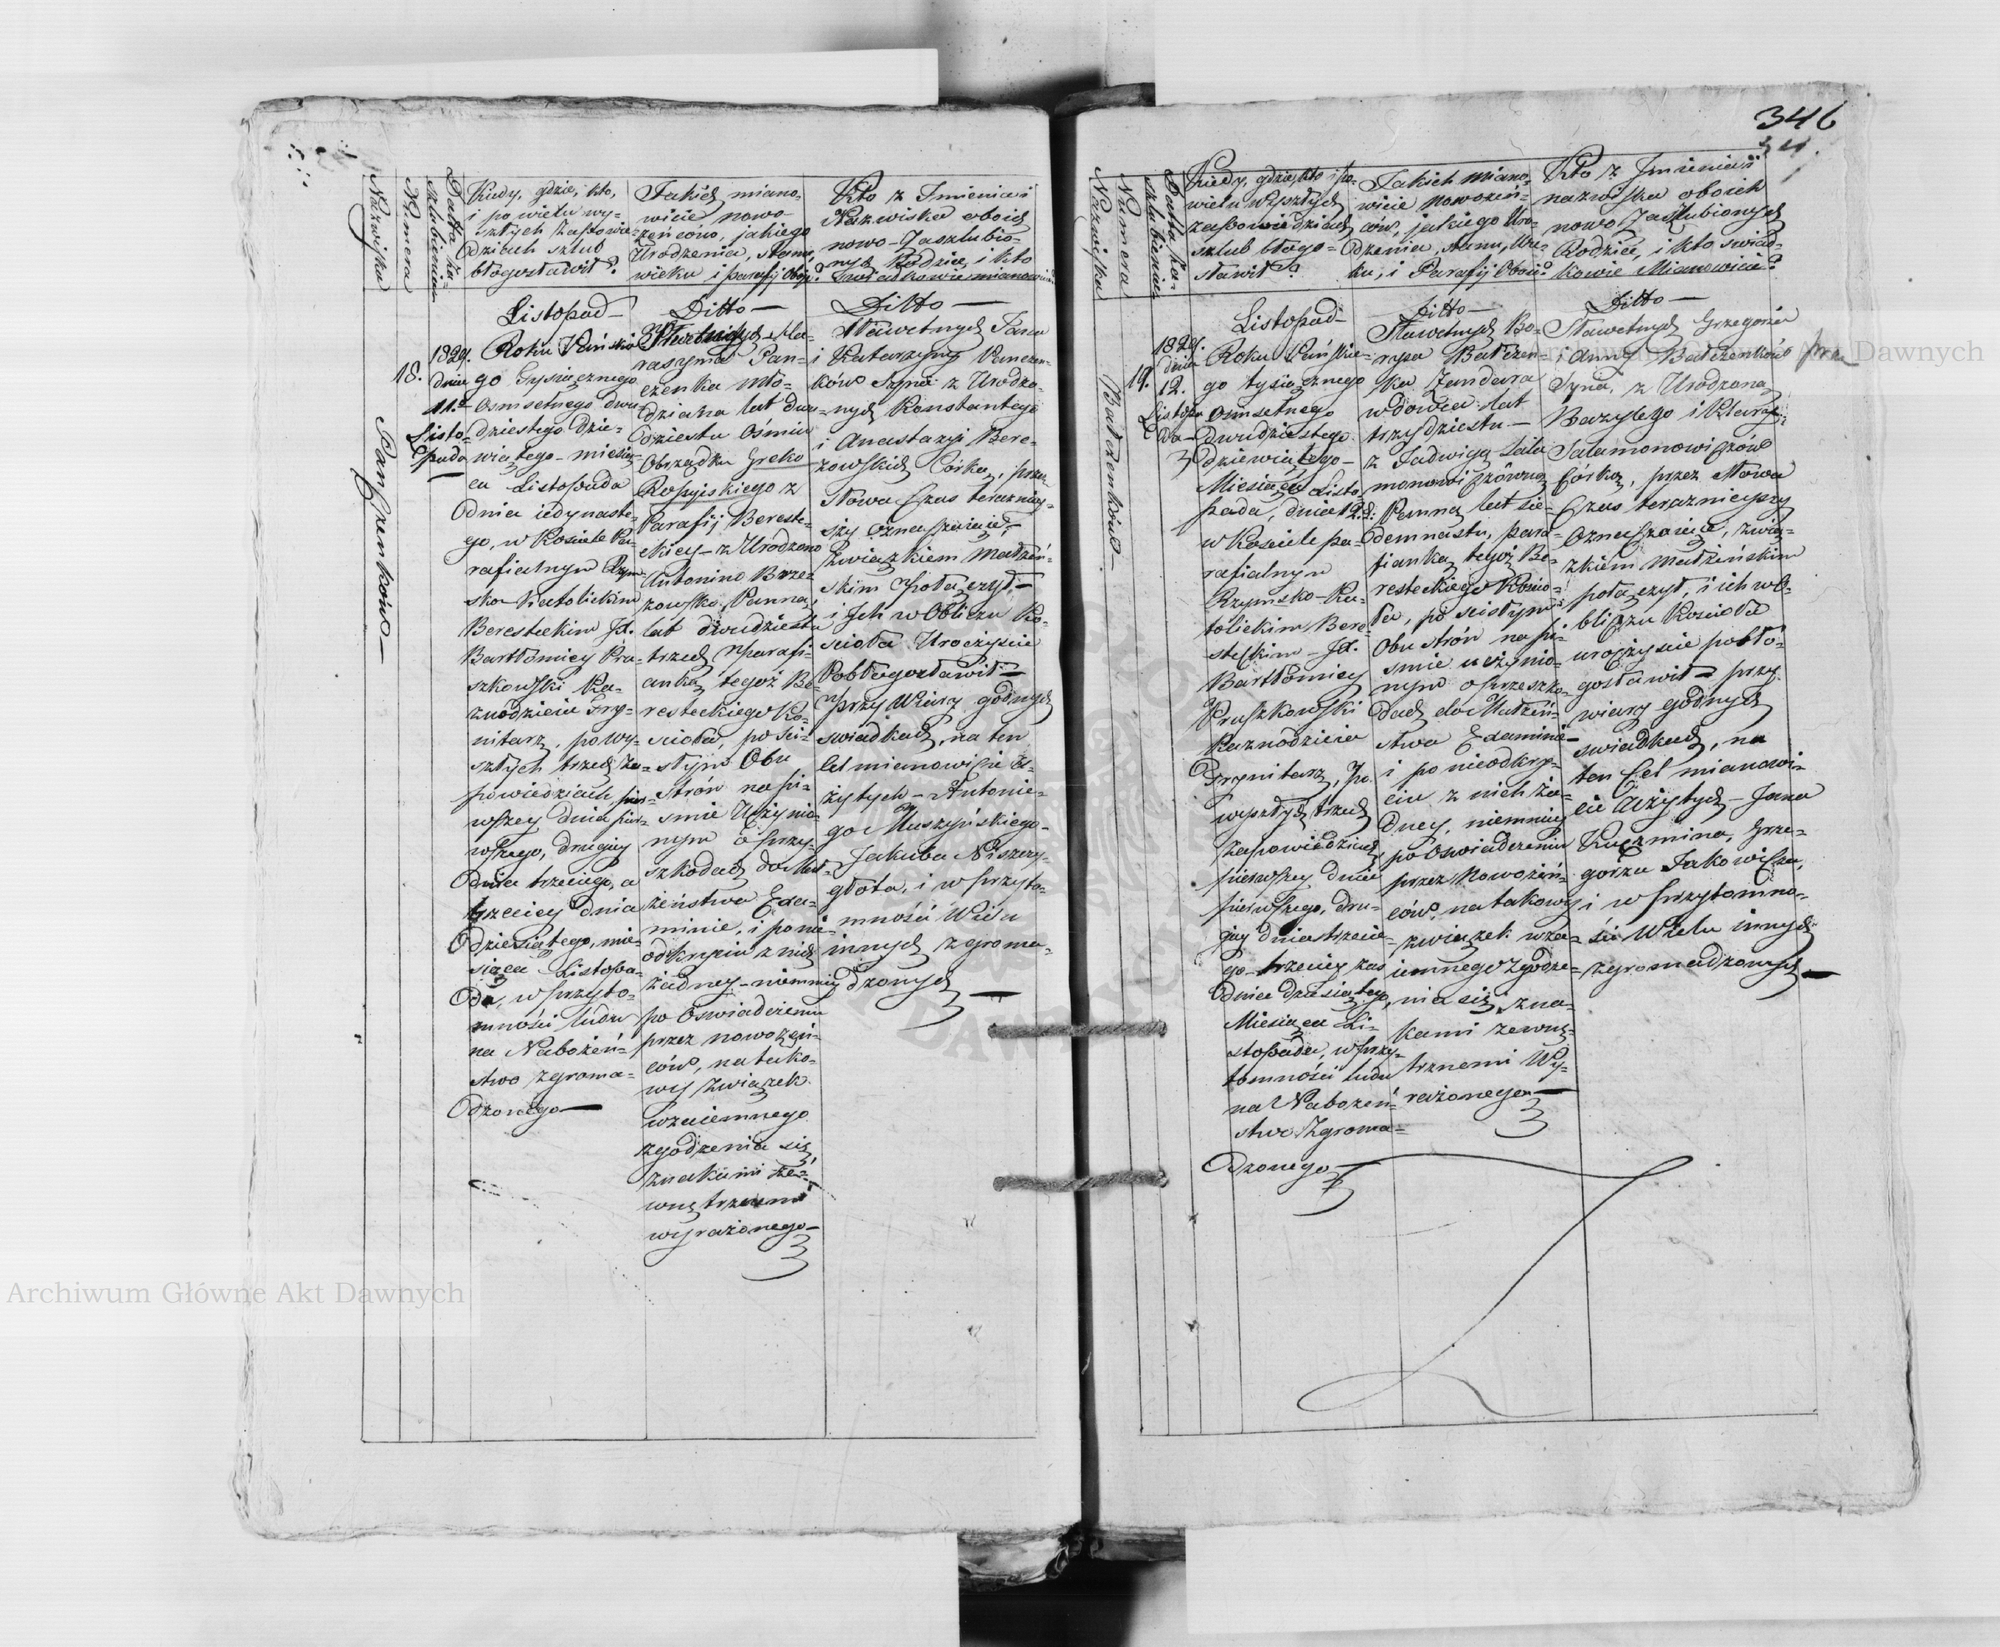 Nazwiska
Numera
Datta za-
szlubienia
Kiedy, gdzie, kto,
i po wielu wy-
szłych Zapowie-
dziach szlub
błogosławił?
Jakich miano-
wicie nowo-
żeńców, jakiego
Urodzenia, stanu,
wieku i parafij Oboje?
Kto z Imienia i
Nazwiska oboich
nowo-Zaszlubio-
nych Rodzice, i kto
Świadkowie mianowicie?
Panczenków
18.
1829.
dnia
11.
Listo-
pada
Listopad
Roku Pańskie-
go Tysiącznego
Osmsetnego dwu-
dziestego dzie-
wiątego miesią-
ca Listopada
dnia iedynaste-
go, w Kosciele Pa-
rafialnym Rzym-
sko Katolickim
Beresteckim Jx.
Bartłomiey Pru-
szkowski Ka-
znodzieia Try-
nitarz, po wy-
szłych trzech Za-
powiedziach, pier-
wszey dnia pier-
wszego, drugiey
dnia trzeciego, a
trzeciey dnia
dziesiątego, mie-
siąca Listopa-
da, w przyto-
mności ludu
na Nabożeń-
stwo zgroma-
dzonego
Ditto
Sławetnych Ha-
rasyma Pan-
czenka Mło-
dziana lat dwu-
dziestu Ośmiu
Obrządku Greko
Rossyiskiego z
Parafij Bereste-
ckiey z Urodzoną
Antoniną Brze-
zowską Panną
lat dwudziestu
trzech Parafi-
anką tegoż Be-
resteckiego Ko-
scioła, po sci-
słym Obu
strón na pi-
smie Uczynio-
nym o przy-
szkodach do Mał-
żeństwa Exa-
minie, i po nie
odkryciu z nich
żadney niemniey
po Oswiadczeniu
przez nowożeń-
ców, na tako-
wy Związek
wzaiemnego
zgodzenia się
znakami ze-
wnętrznemi
wyrażonego
Ditto
Sławetnych Jana
i Katarzyny Panczen-
ków Syna z Urodzo-
nych Konstantego
i Anastazyi Bere-
zowskich Córką, przez
Słowa Czas terazniey-
szy Oznaczaiące
Związkiem Małżeń-
skim Połączył
i Ich w Obliczu Ko-
scioła Uroczyscie
Pobłogosławił
przy Wiary godnych
swiadkach, na ten
Cel mianowicie U-
żytych Antonie-
go Muszyńskiego
Jakuba Niszczy-
głota, i w przyto-
mności Wielu
innych zgroma-
dzonych
346
Nazwiska
Numera
Datta Za-
szlubienia
Kiedy, gdzie, kto i po-
wielu Wyszłych
zapowiedziach
szlub błogo-
sławił?
Jakich Miano-
wicie nowożeń-
ców, jakiego Uro-
dzenia, stanu, Wie-
ku, i Parafij Oboie?
Kto z Imienia i
nazwiska oboich
nowo Zaszlubionych
Rodzice, i kto swiad-
kowie Mianowicie?
Batczenków
19.
1829.
Dnia
12.
Listopa
da
Listopad
Roku Pańskie-
go tysiącznego
osmsetnego
dwudziestego
dziewiątego
Miesiąca Listo-
pada, dnia 12.
w Kosciele pa-
rafialnym
Rzymsko-Ka-
tolickim Bere-
steckim Jx.
Bartłomiey
Pruszkowski
Kaznodzieia
Trynitarz, po
wyszłych trzech
zapowiedziach
pierwszey dnia
pierwszego, dru-
giey dnia trzecie-
go trzeciey zaś
dnia dziesiątego,
Miesiąca Li-
stopada, w przy-
tomności ludu
na Nabożeń-
stwo Zgroma-
dzonego
Ditto
Sławetnych Bo-
rysa Batczen-
ka Zandara
wdowca lat
trzydziestu
z Jadwigą Sala
monowiczówną
Panną lat sie-
demnastu, para-
fianką tegoż Be-
resteckiego Koscio-
ła, po scisłym
Obu strón na pi-
smie uczynio-
nym o przeszko-
dach do Małżeń-
stwa Examinie
i po nieodkry-
ciu z nich ża-
dney, niemniey
po Oswiadczeniu
przez Nowożeń-
ców, na takowy
związek wza-
iemnego Zgodze-
nia się zna-
kami zewnę-
trznemi Wy-
rażonego
Ditto
Sławetnych Grzegorza
i Anny Batczenków
Syna, z Urodzoną
Bazylego i Klary
Salamonowiczów
Córką, przez słowa
Czas teraznieyszy
Oznaczaiące, zwią-
zkiem Małżeńskim
połączył, i ich w O-
bliczu Kościoła
uroczyscie pobło-
gosławił przy
wiary godnych
swiadkach, na
ten Cel mianowi-
cie Użytych Jana
Kuzmina, Grze-
gorza Jakowicza,
i w przytomno-
ści Wielu innych
zgromadzonych
Archiwum Główne Akt Dawnych
Archiwum Główne Akt Dawnych